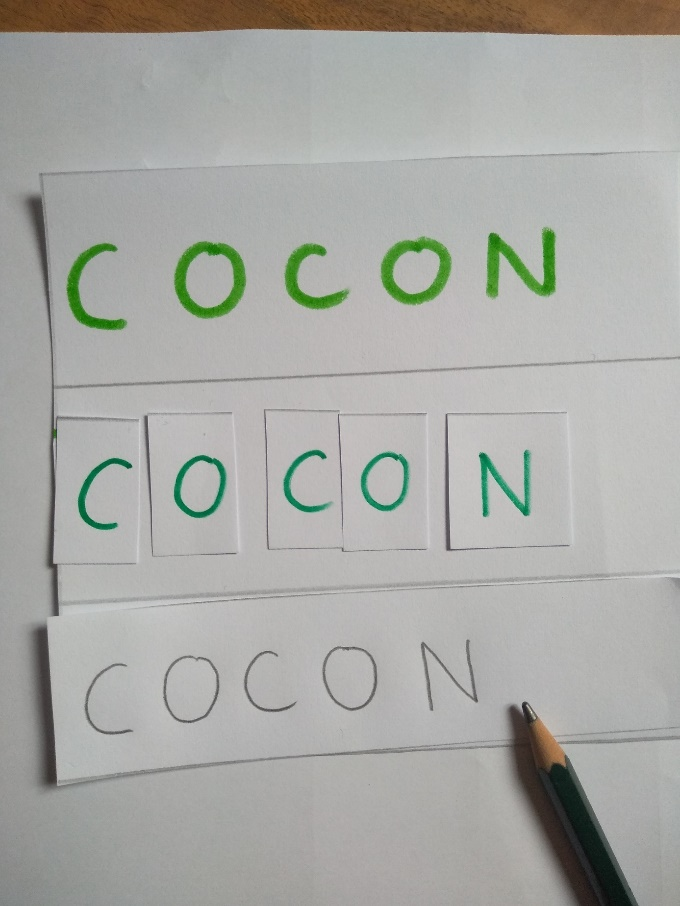 COCON
COCON
COCON